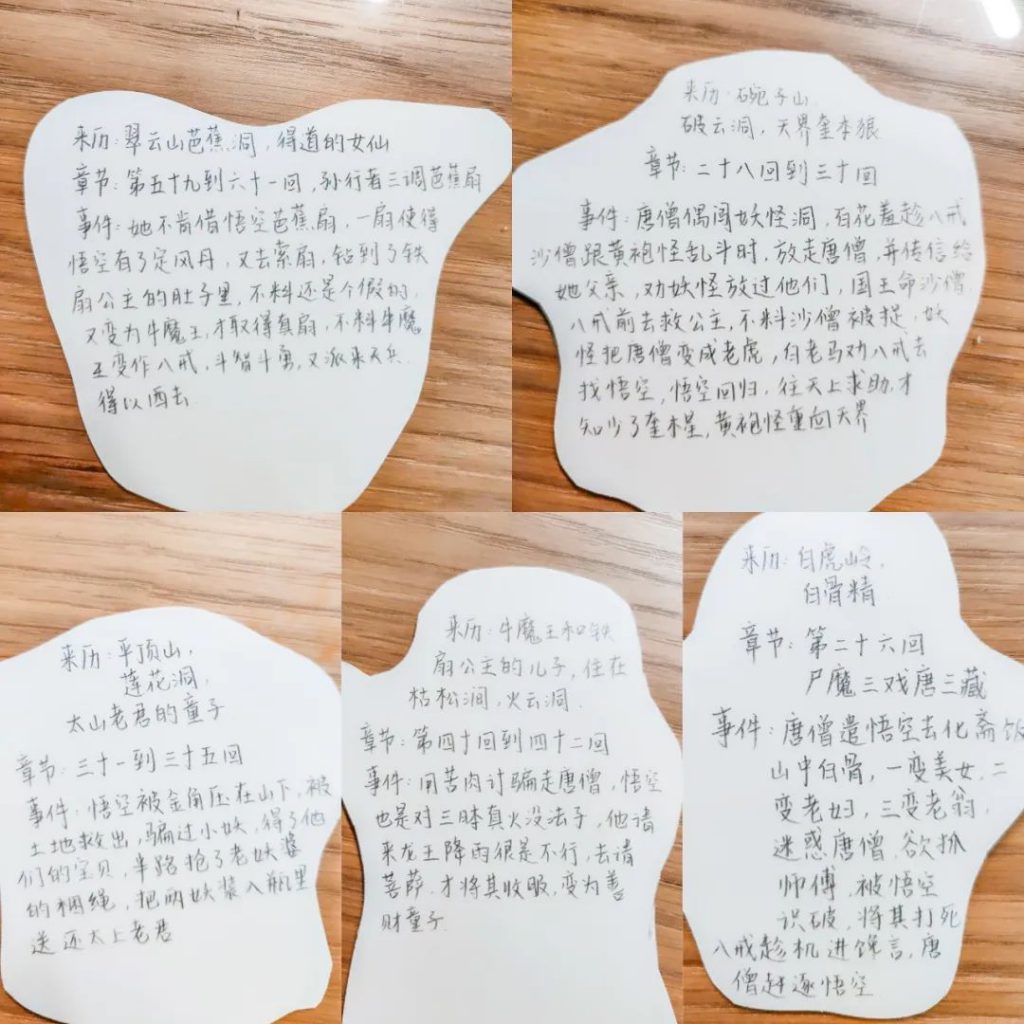 来历:翠云山芭蕉洞,得道的女仙
章节:第五十九到六十一回,孙行者三调芭蕉扇
事件:她不肯借悟空芭蕉扇,一扇使得
悟空有了定风丹,又去索扇,钻到了铁
扇公主的肚子里,不料还是个假的,
又变为牛魔王,才取得真扇,不料牛魔
王变作八戒,斗智斗勇,又派来天兵
得以西去.
来历:碗子山
破云洞,天界奎木狼
章节:二十八回到三十回
事件:唐僧偶闯妖怪洞,百花羞趁八戒
沙僧跟黄袍怪乱斗时,放走唐僧,并传信给
她父亲,劝妖怪放过他们,国王命沙僧
八戒前去救公主,不料沙僧被捉,妖
怪把唐僧变成老虎,白老马劝八戒去
找悟空,悟空回归,往天上求助,才
知少了奎木星,黄袍怪重回天界
来历:平顶山,
莲花洞,
太山老君的童子
章节:三十一到三十五回
事件:悟空被金角压在山下,被
土地救出,骗过小妖,得了他
们的宝贝,半路抢了老妖婆
的捆绳,把两妖装入瓶里
送还太上老君
来历:牛魔王和铁
扇公主的儿子,住在
枯松涧,火云洞.
章节:第四十回到四十二回
事件:用苦肉计骗走唐僧,悟空
也是对三昧真火没法子,他请
来龙王降雨很是不行,去请
菩萨,才将其收服,变为善
财童子.
来历:白虎岭,
白骨精
章节:第二十六回
尸魔三戏唐三藏
事件:唐僧遣悟空去化斋饭
山中白骨,一变美女,二
变老妇,三变老翁,
迷惑唐僧,欲抓
师傅,被悟空
识破,将其打死
八戒趁机进馋言,唐
僧赶逐悟空